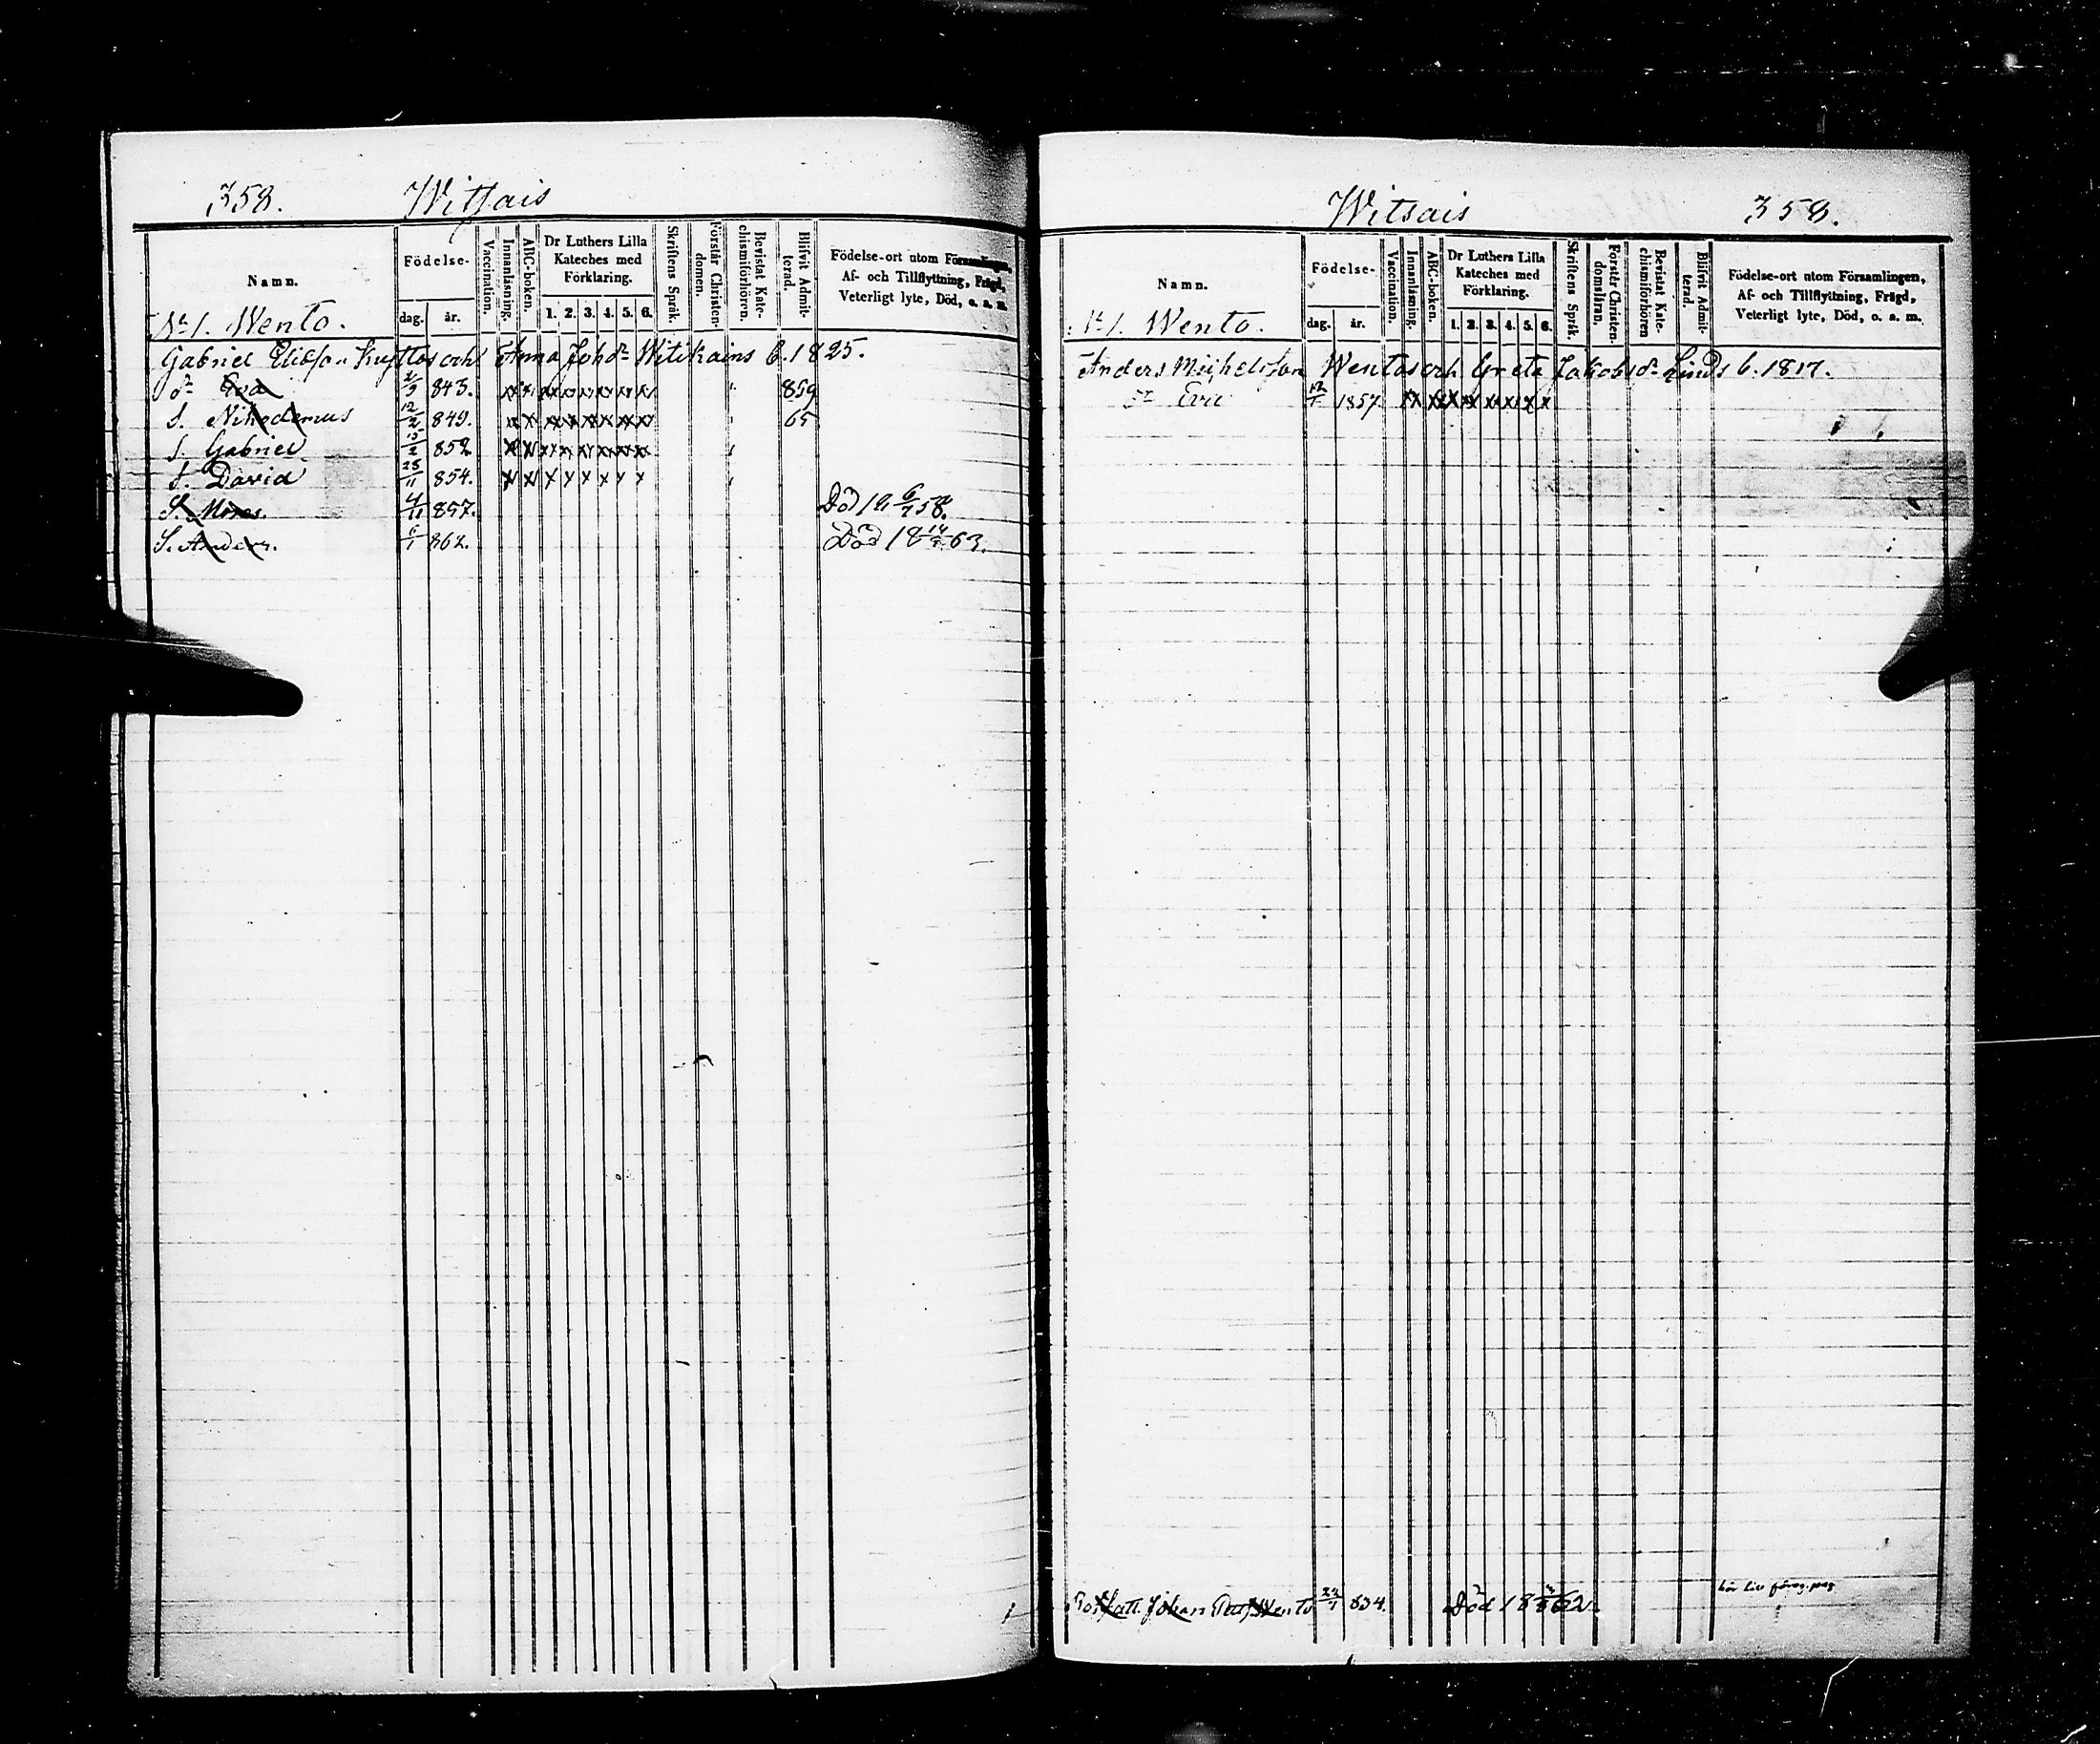 358. Witsais
Namn.
Födelse-
dag. år.
Vaccination.
Innanläsning.
ABC-boken.
Dr Luthers Lilla
Kateches med
Förklaring.
1. 2. 3. 4. 5. 6.
Skriftens Språk.
Förstår Christen-
domen.
Bevistat Kate-
chismiförhören.
Blifvit Admit-
terad.
Födelse-ort utom Församlingen,
Af- och Tillflyttning, Frägd,
Veterligt lyte, Död, o. s. m.
No 1. Wento.
Gabriel Eliasson och Anna Johdr Witikains b. 1825.
dr Eva 843. 859
S. Nikodemus 12/2 849. 65
S. Gabriel 15/2 852
S. David 28/11 854.
S. Moses. 4/11 857. Död 18 6/7 58.
S. Anders. 6/1 862. Död 18 63.
Witsais 358.
Namn.
Födelse-
dag. år.
Vaccination.
Innanläsning.
ABC-boken.
Dr Luthers Lilla
Kateches med
Förklaring.
1. 2. 3. 4. 5. 6.
Skriftens Språk.
Förstår Christen-
domsläran.
Bevistat Kate-
chismiförhören
Blifvit Admit-
terad.
Födelse-ort utom Församlingen,
Af- och Tillflyttning, Frägd,
Veterligt lyte, Död, o. s. m.
No 1. Wento.
Anders Michelsson Wentos och Greta Jakobsdr Linds b. 1817.
dr Eva 1857
Johan Wento 834. Död 18 62.
hör till föreg. pag.